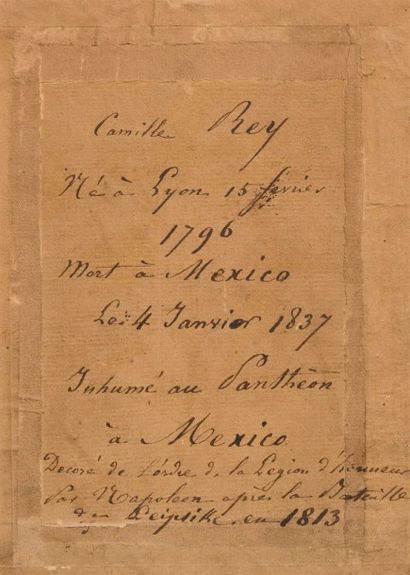 Camille Rey
Né à Lyon 15 fevrier
1796
Mort à Mexico
Le 4 Janvier 1837
Inhumé au Panthèon
à Mexico
Decoré de L'ordre de la Legion d'honneur
Par Napoleon après la Bataille
de Leipsike en 1813